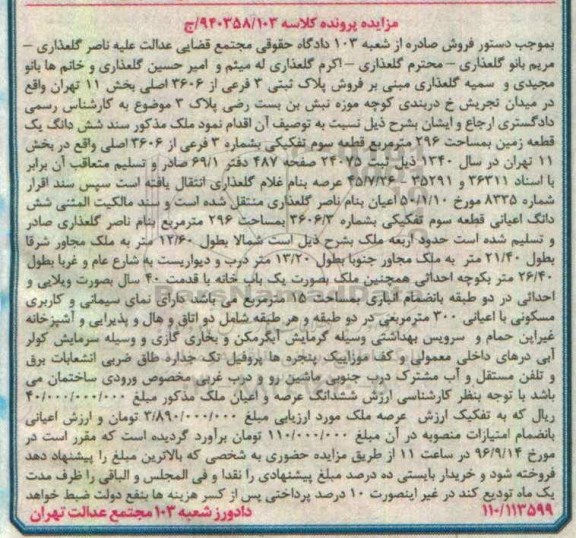 مزایده پرونده کلاسه ۹۴۰۳۵۸/۱۰۳/ج
بموجب دستور فروش صادره از شعبه ۱۰۳ دادگاه حقوقی مجتمع قضایی عدالت علیه ناصر گلعذاری –
مریم بانو گلعذاری – محترم گلعذاری – اکرم گلعذاری له میثم و امیر حسین گلعذاری و خانم ها بانو
مجیدی و سمیه گلعذاری مبنی بر فروش پلاک ثبتی ۳ فرعی از ۳۶۰۶ اصلی بخش ۱۱ تهران واقع
در میدان تجریش خ دربندی کوچه موزه نبش بن بست رضی پلاک ۳ موضوع به کارشناس رسمی
دادگستری ارجاع و ایشان بشرح ذیل نسبت به توصیف آن اقدام نمود ملک مذکور سند شش دانگ یک
قطعه زمین بمساحت ۲۹۶ مترمربع قطعه سوم تفکیکی بشماره ۳ فرعی از ۳۶۰۶ اصلی واقع در بخش
۱۱ تهران در سال ۱۳۴۰ ذیل ثبت ۲۴۰۷۵ صفحه ۴۸۷ دفتر ۶۹/۱ صادر و تسلیم متعاقب آن برابر
با اسناد ۳۶۳۱۱ و ۳۵۲۹۱ – ۴۵/۷/۲۶ عرصه بنام غلام گلعذاری انتقال یافته است سپس سند اقرار
شماره ۸۳۳۵ مورخ ۵۰/۱/۱۰ اعیان بنام ناصر گلعذاری منتقل شده است و سند مالکیت المثنی شش
دانگ اعیانی قطعه سوم تفکیکی بشماره ۳۶۰۶/۳ بمساحت ۲۹۶ مترمربع بنام ناصر گلعذاری صادر
و تسلیم شده است حدود اربعه ملک بشرح ذیل است شمالا بطول ۱۲/۶۰ متر به ملک مجاور شرقا
بطول ۲۱/۴۰ متر به ملک مجاور جنوبا بطول ۱۳/۲۰ متر درب و دیواریست به شارع عام و غربا بطول
۲۶/۴۰ متر بکوچه احداثی همچنین ملک بصورت یک باب خانه با قدمت ۴۰ سال بصورت ویلایی و
احداثی در دو طبقه بانضمام انباری بمساحت ۱۵ مترمربع می باشد دارای نمای سیمانی و کاربری
مسکونی با اعیانی ۳۰۰ مترمربعی در دو طبقه و هر طبقه شامل دو اتاق و هال و پذیرایی و آشپزخانه
غیراین حمام و سرویس بهداشتی وسیله گرمایش آبگرمکن و بخاری گازی و وسیله سرمایش کولر
آبی درهای داخلی معمولی و کف موزاییک پنجره ها پروفیل تک جداره طاق ضربی انشعابات برق
و تلفن مستقل و آب مشترک درب جنوبی ماشین رو و درب غربی مخصوص ورودی ساختمان می
باشد با توجه بنظر کارشناسی ارزش ششدانگ عرصه و اعیان ملک مذکور مبلغ ۴۰/۰۰۰/۰۰۰/۰۰۰
ریال که به تفکیک ارزش عرصه ملک مورد ارزیابی مبلغ ۳/۸۹۰/۰۰۰/۰۰۰ تومان و ارزش اعیانی
بانضمام امتیازات منصوبه در آن مبلغ ۱۱۰/۰۰۰/۰۰۰ تومان برآورد گردیده است که مقرر است در
مورخ ۹۶/۹/۱۴ در ساعت ۱۱ از طریق مزایده حضوری به شخصی که بالاترین مبلغ را پیشنهاد دهد
فروخته شود و خریدار بایستی ده درصد مبلغ پیشنهادی را نقدا و فی المجلس و الباقی را ظرف مدت
یک ماه تودیع کند در غیر اینصورت ۱۰ درصد پرداختی پس از کسر هزینه ها بنفع دولت ضبط خواهد
۱۱۰/۱۱۳۵۹۹ دادورز شعبه ۱۰۳ مجتمع عدالت تهران